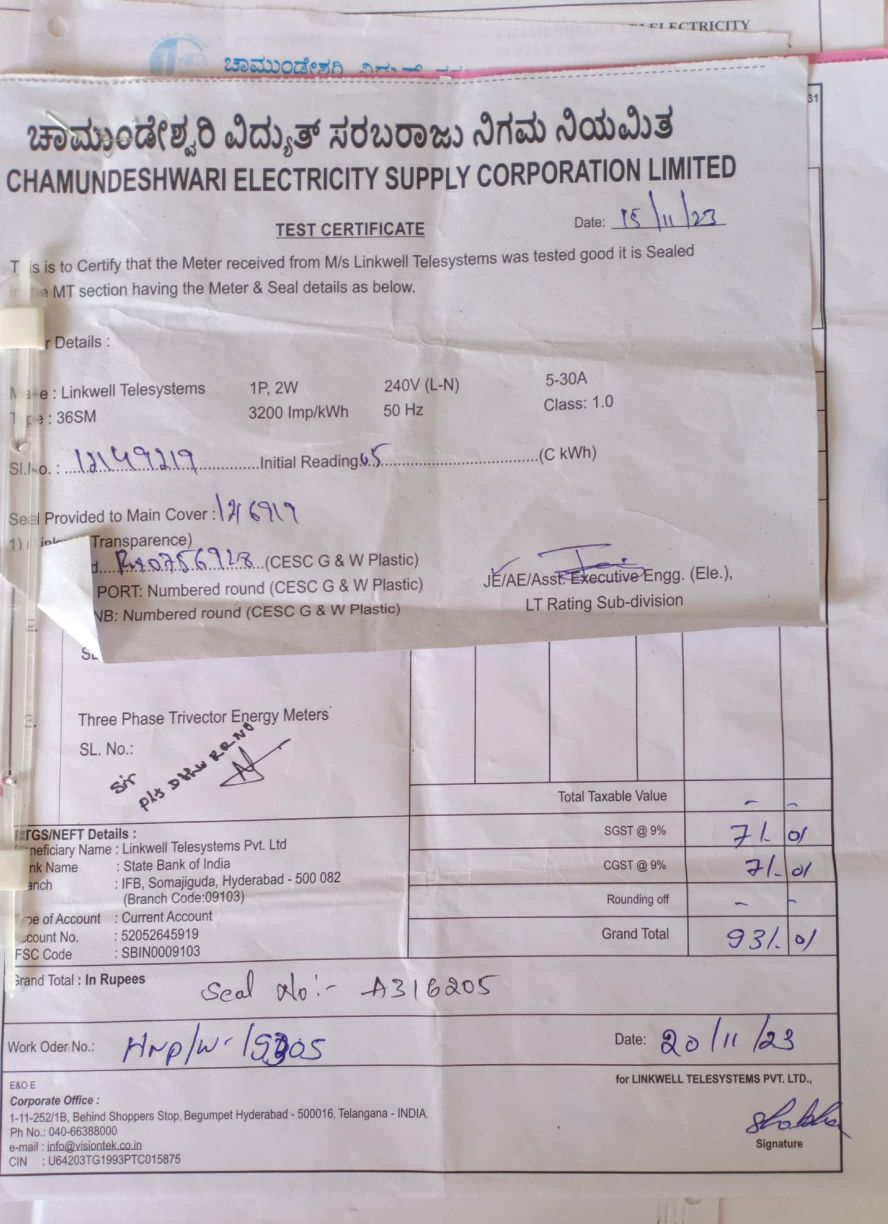 ELECTRICITY
ಚಾಮುಂಡೇಶ್ವರಿ
31
ಚಾಮುಂಡೇಶ್ವರಿ ವಿದ್ಯುತ್ ಸರಬರಾಜು ನಿಗಮ ನಿಯಮಿತ
CHAMUNDESHWARI ELECTRICITY SUPPLY CORPORATION LIMITED
TEST CERTIFICATE
Date: 15/11/23
is is to Certify that the Meter received from M/s Linkwell Telesystems was tested good it is Sealed
MT section having the Meter & Seal details as below.
r Details :
: Linkwell Telesystems 1P, 2W 240V (L-N) 5-30A
: 36SM 3200 Imp/kWh 50 Hz Class: 1.0
Sl.No. : 12149219 Initial Reading (C kWh)
Seal Provided to Main Cover : 1216919
1) Transparence)
d. (CESC G & W Plastic)
PORT: Numbered round (CESC G & W Plastic)
NB: Numbered round (CESC G & W Plastic)
JE/AE/Asst. Executive Engg. (Ele.),
LT Rating Sub-division
SL
3. Three Phase Trivector Energy Meters
SL. No.:
Sir
RR NO
Total Taxable Value - -
TGS/NEFT Details :
neficiary Name : Linkwell Telesystems Pvt. Ltd
nk Name : State Bank of India
anch : IFB, Somajiguda, Hyderabad - 500 082
(Branch Code:09103)
pe of Account : Current Account
ccount No. : 52052645919
FSC Code : SBIN0009103
SGST @ 9% 71. 01
CGST @ 9% 71. 01
Rounding off - -
Grand Total 931. 01
Grand Total : In Rupees
Seal No:- A316205
Work Oder No.:
Date: 20/11/23
E&O E
Corporate Office :
1-11-252/1B, Behind Shoppers Stop, Begumpet Hyderabad - 500016, Telangana - INDIA.
Ph No.: 040-66388000
e-mail : info@visiontek.co.in
CIN : U64203TG1993PTC015875
for LINKWELL TELESYSTEMS PVT. LTD.,
Signature